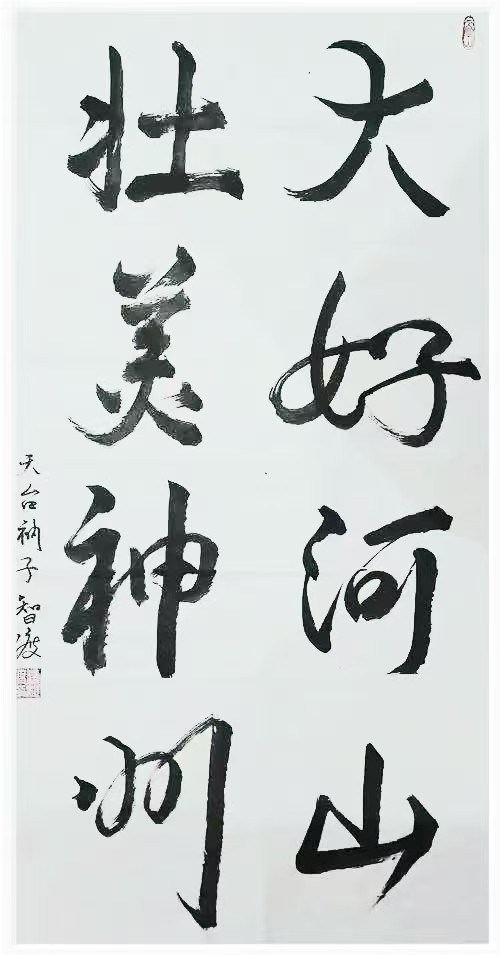 大好河山
壮美神州
天台衲子智度